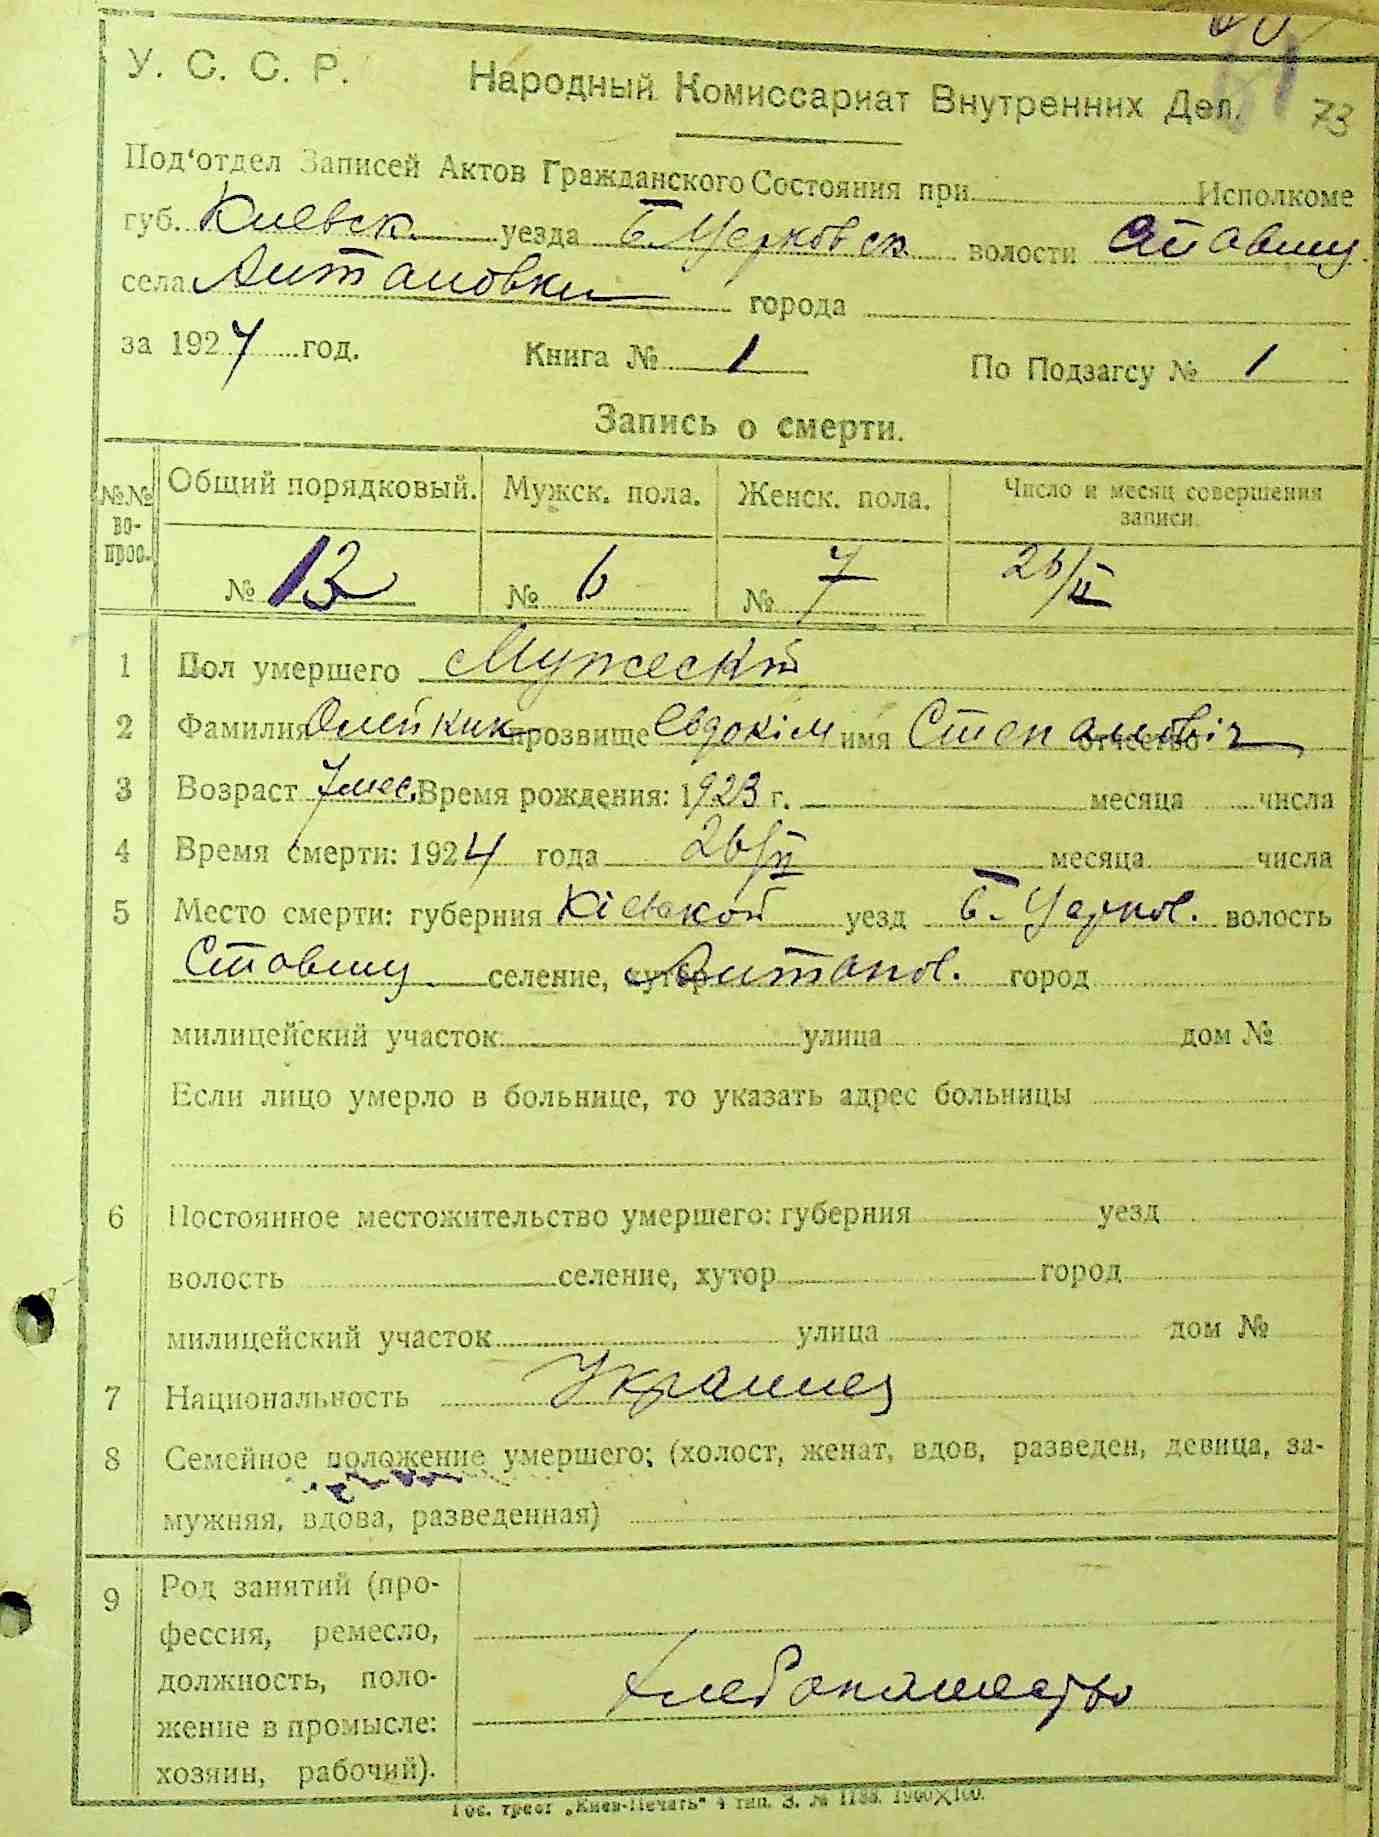 73
У. С. С. Р. Народный Комиссариат Внутренних Дел.
Под'отдел Записей Актов Гражданского Состояния при Исполкоме
губ. Киевск. уезда Б. Церковск волости Ставищ.
села Антоновки города
за 1924 год. Книга № 1 По Подзагсу № 1
Запись о смерти.
№№ во- прос. Общий порядковый. Мужск. пола. Женск. пола. Число и месяц совершения записи.
№ 13 № 6 № 7 26/II
1 Пол умершего Мужеский
2 Фамилия Олейник прозвище Євдокім имя Степановіч отчество
3 Возраст 7 мес. Время рождения: 1923 г. месяца числа
4 Время смерти: 1924 года 26/II месяца числа
5 Место смерти: губерния Кіевской уезд Б. Церков. волость
Ставищ селение, хутор Антонов. город
милицейский участок улица дом №
Если лицо умерло в больнице, то указать адрес больницы
6 Постоянное местожительство умершего: губерния уезд
волость селение, хутор город
милицейский участок улица дом №
7 Национальность Украинец
8 Семейное положение умершего; (холост, женат, вдов, разведен, девица, за-
мужняя, вдова, разведенная)
9 Род занятий (про-
фессия, ремесло,
должность, поло-
жение в промысле:
хозяин, рабочий).
Хлебопашество
Гос. трест „Киев-Печать" 4 тип. З. № 1188. 1900×100.